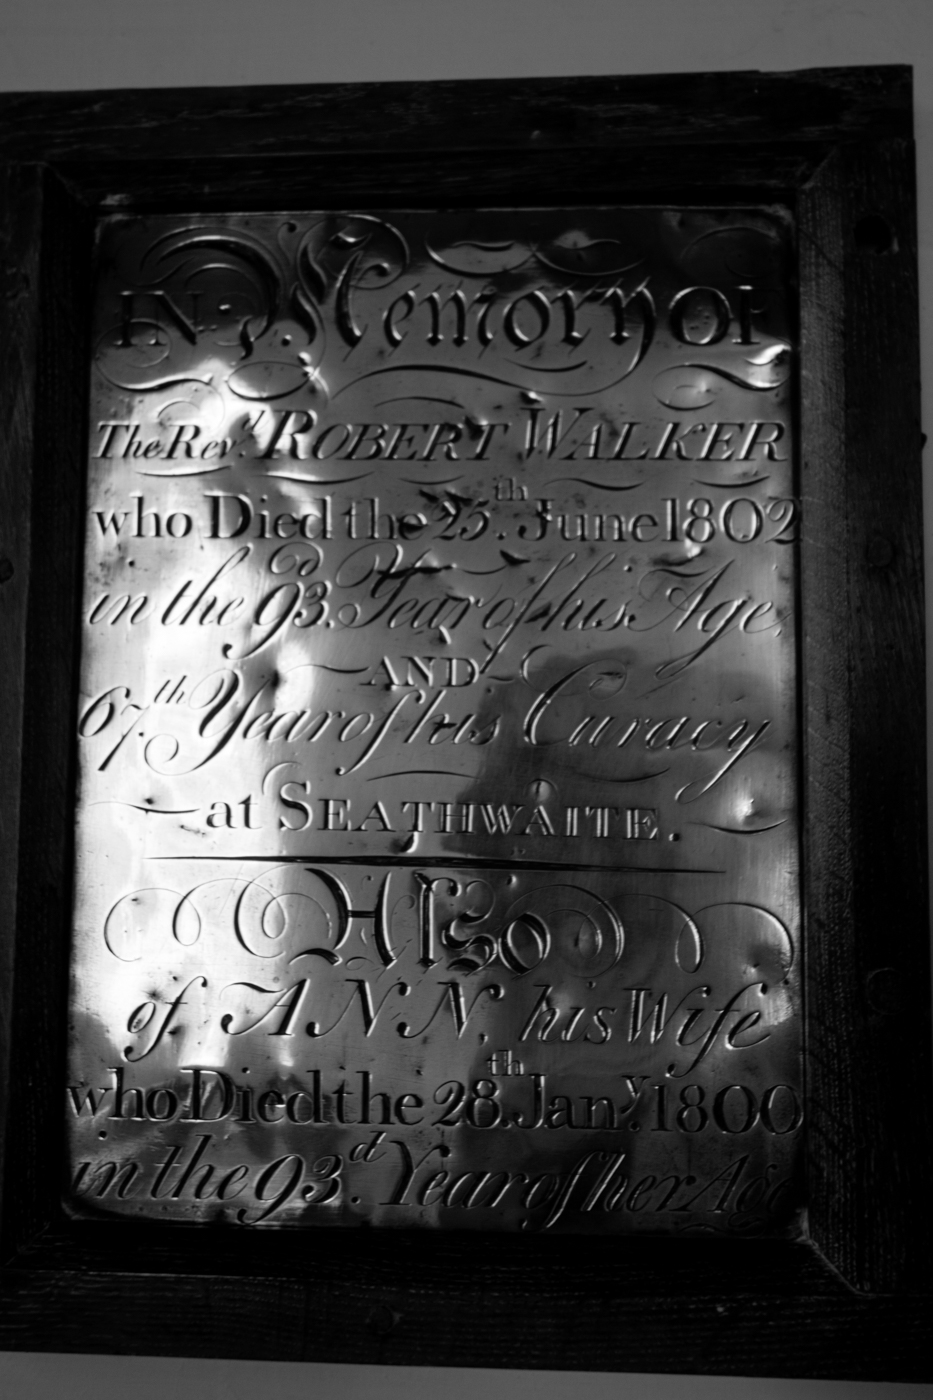 IN Memory OF
The Rev.d ROBERT WALKER
who Died the 25.th June 1802
in the 93. Year of his Age,
AND
67.th Year of his Curacy
at SEATHWAITE.
Also
of ANN, his Wife
who Died the 28.th Jan.y 1800
in the 93.d Year of her Age